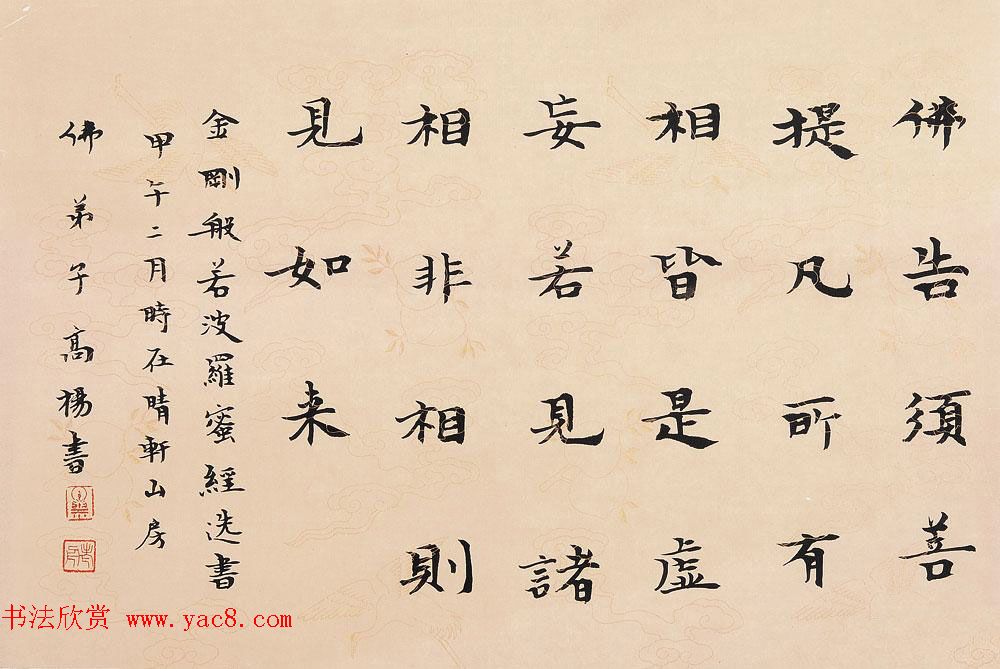 佛告須菩
提凡所有
相皆是虛
妄若見諸
相非相則
見如来
金剛般若波羅蜜經选書
甲午二月時在晴軒山房
佛弟子高楊書
书法欣赏 www.yac8.com